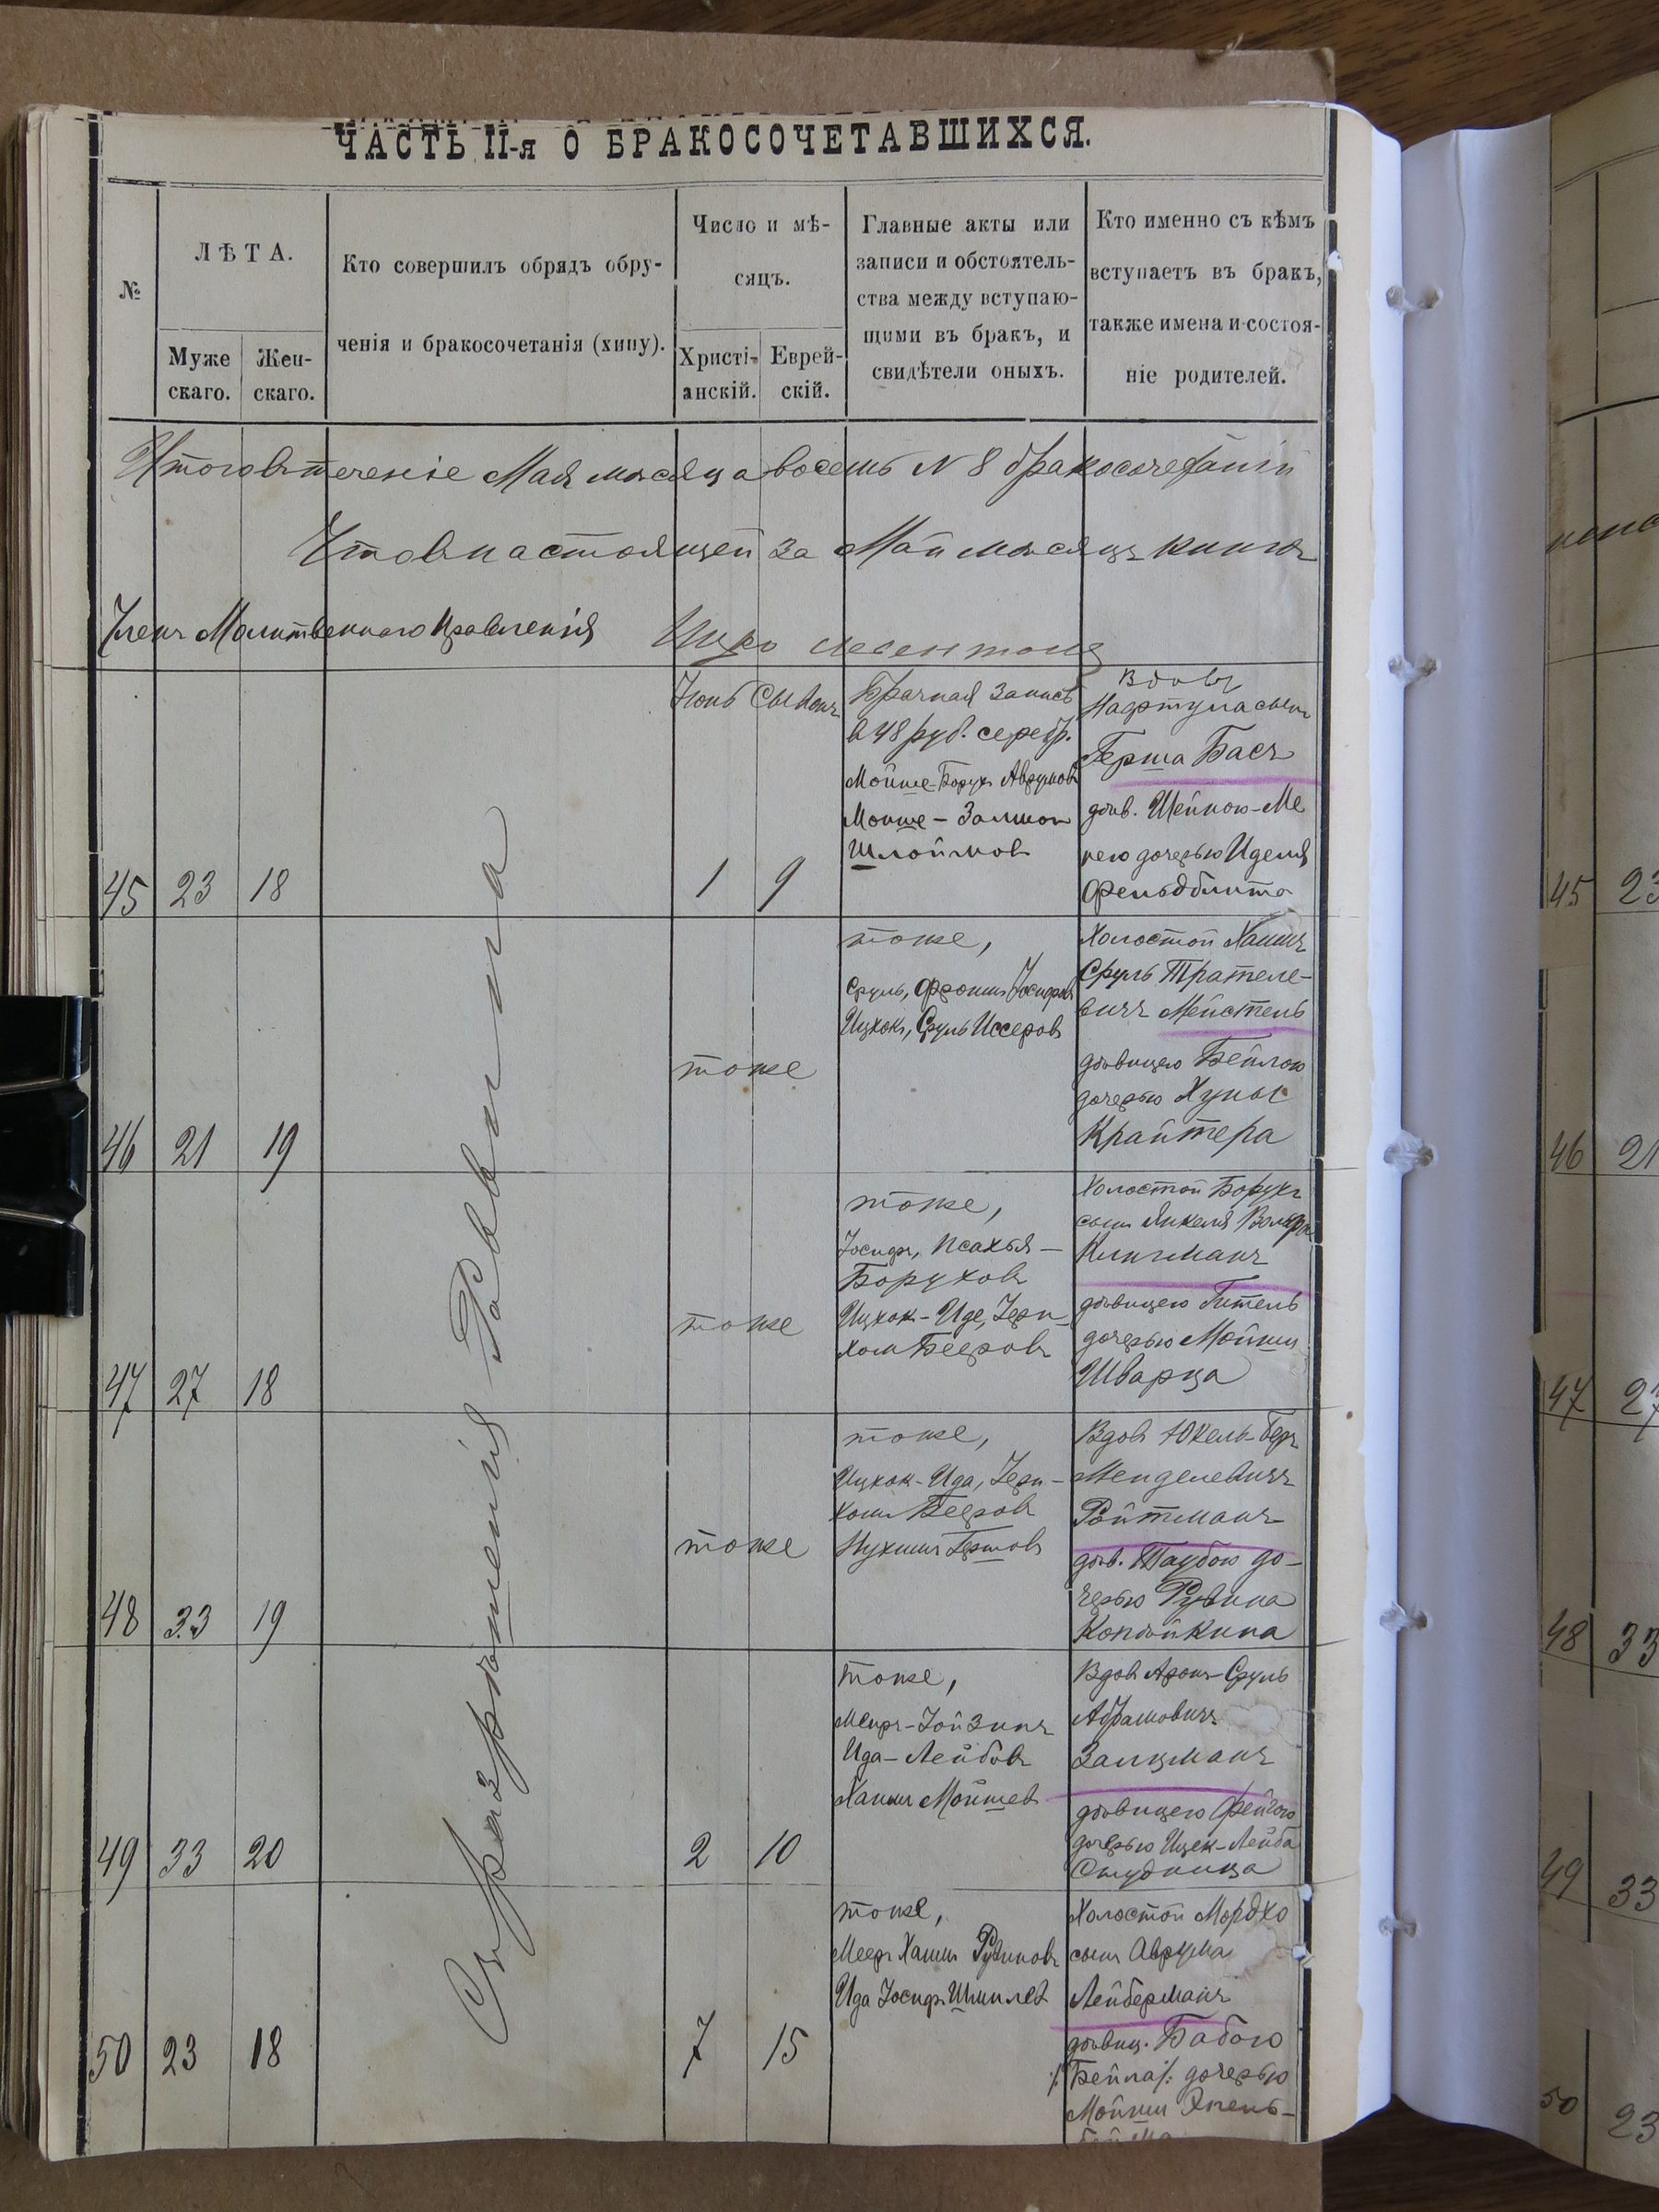 ЧАСТЬ II-я О БРАКОСОЧЕТАВШИХСЯ.
№
ЛѢТА.
Муже
скаго.
Жен-
скаго.
Кто совершилъ обрядъ обру-
ченія и бракосочетанія (хипу).
Число и мѣ-
сяцъ.
Христі-
анскій.
Еврей-
скій.
Главные акты или
записи и обстоятель-
ства между вступаю-
щими въ бракъ, и
свидѣтели оныхъ.
Кто именно съ кѣмъ
вступаетъ въ бракъ,
также имена и состоя-
ніе родителей.
Итого въ теченіе Мая мѣсяца восемь N 8 бракосочетаній
Что въ настоящей за Май мѣсяцъ книгѣ
Членъ Молитвеннаго Правленія Ицко
Съ разрѣшенія Раввина
45
23
18
Іюнь Сыванъ
1
9
Брачная запись
в 48 руб. серебр.
Мойше-Борух Аврумовъ
Мойше-Залмон
Шлоймов
Вдовъ
Нафтула сынъ
Герша Басъ
дѣв. Шейною-Ме
нею дочерью Иделя
Фельдблита
46
21
19
тоже
тоже,
Сруль, Фроимъ Іосифов
Ицхокъ, Сруль Иссеровъ
Холостой Хаимъ
Сруль Трателе-
вичъ Мейстель
дѣвицею Бейлою
дочерью Хуны
Крайтера
47
27
18
тоже
тоже,
Іосифъ, Псахья-
Боруховъ
Ицхок-Иде, Іери-
хом Бееровъ
Холостой Борухъ
сынъ Янкеля Вольфа
Клигманъ
дѣвицею Гитель
дочерью Мойши
Шварца
48
33
19
тоже
тоже,
Ицхок-Ида, Іери-
хом Бееровъ
Нухимъ Гершовъ
Вдов Юкель-Беръ
Менделевичъ
Ройтманъ
дѣв. Таубою до-
черью Рувина
Копѣйкина
49
33
20
2
10
тоже,
Меиръ-Зойзинъ
Ида-Лейбовъ
Хаимъ Мойшев
Вдов Аронъ-Сруль
Абрамовичъ
Залцманъ
дѣвицею Фейгою
дочерью Ицек-Лейба
Студница
50
23
18
7
15
тоже,
Мееръ Хаимъ Рувиновъ
Ида Іосифъ Шмилев
Холостой Мордко
сынъ Аврума
Лейберманъ
дѣвиц. Бабою
/: Бейла /: дочерью
Мойши
45
23
46
21
47
27
48
33
49
33
50
23